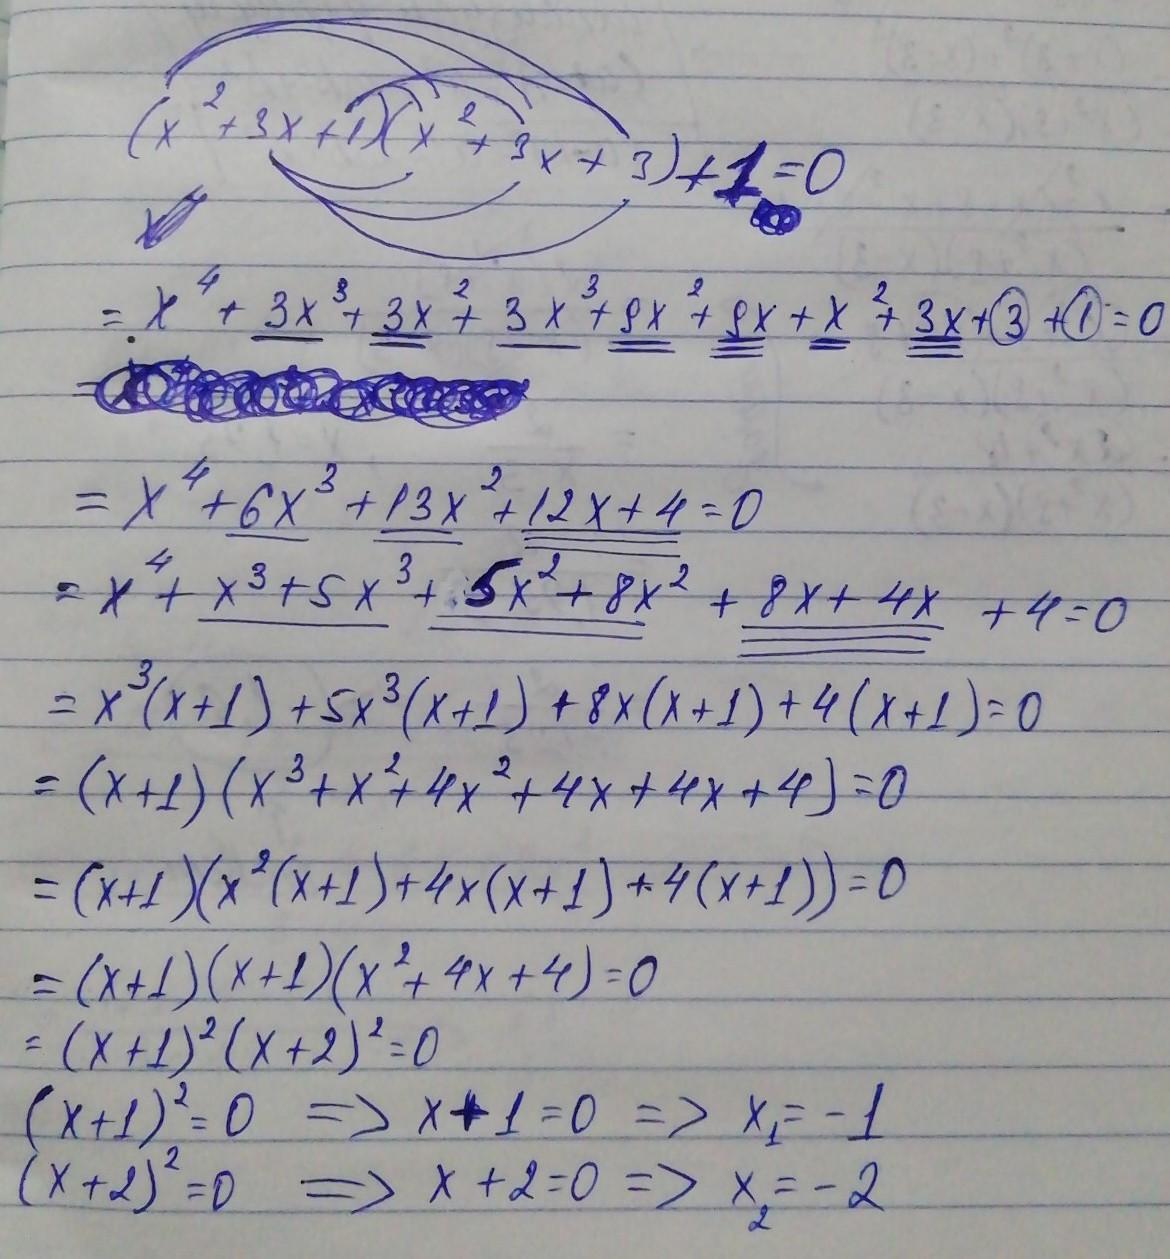 (x²+3x+1)(x²+3x+3)+1=0
= x⁴ + 3x³ + 3x² + 3x³ + 9x² + 9x + x² + 3x + 3 + 1 = 0
= x⁴ + 6x³ + 13x² + 12x + 4 = 0
= x⁴ + x³ + 5x³ + 5x² + 8x² + 8x + 4x + 4 = 0
= x³(x+1) + 5x³(x+1) + 8x(x+1) + 4(x+1) = 0
= (x+1)(x³ + x² + 4x² + 4x + 4x + 4) = 0
= (x+1)(x²(x+1) + 4x(x+1) + 4(x+1)) = 0
= (x+1)(x+1)(x² + 4x + 4) = 0
= (x+1)²(x+2)² = 0
(x+1)² = 0 => x+1 = 0 => x₁ = -1
(x+2)² = 0 => x+2 = 0 => x₂ = -2